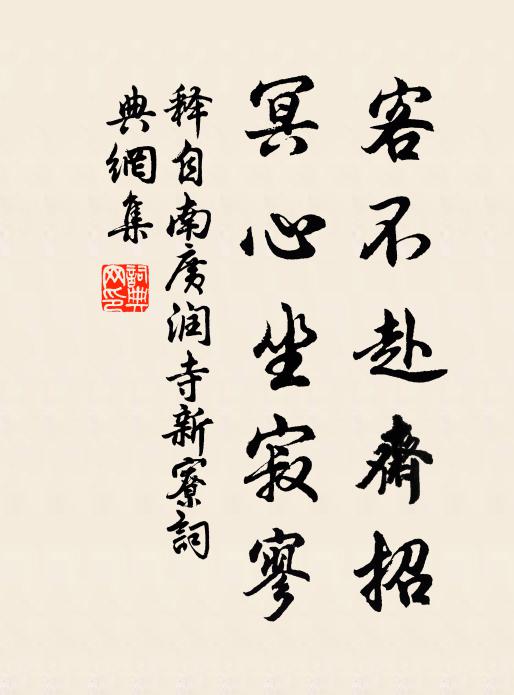 客不赴齋招
冥心坐寂寥
释自南廣润寺新寮詞
典網集
詞典網印